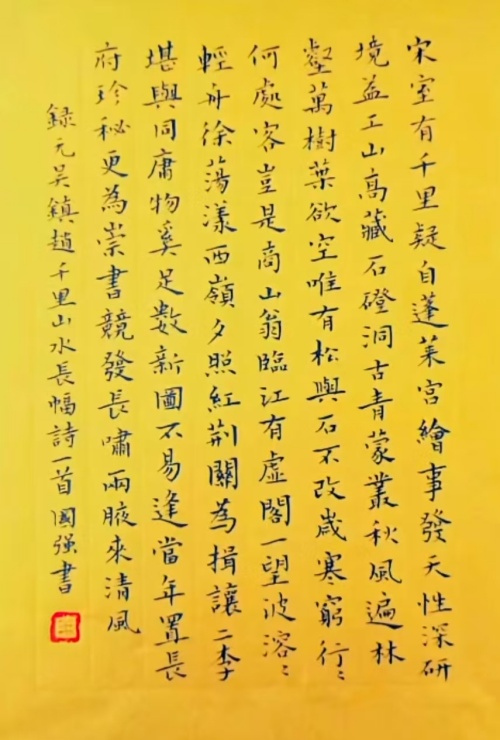 宋室有千里疑自蓬莱宫繪事發天性深研
境益工山高藏石磴洞古青蒙叢秋風遍林
壑萬樹葉欲空唯有松與石不改歲寒窮行〻
何處客豈是商山翁臨江有虛閣一望波溶〻
輕舟徐蕩漾西嶺夕照紅荆關為揖讓二李
堪輿同庸物奚足數新圖不易逢當年置長
府珍秘更為崇書競發長嘯兩腋來清風
錄元吴鎮趙千里山水長幅詩一首國强書